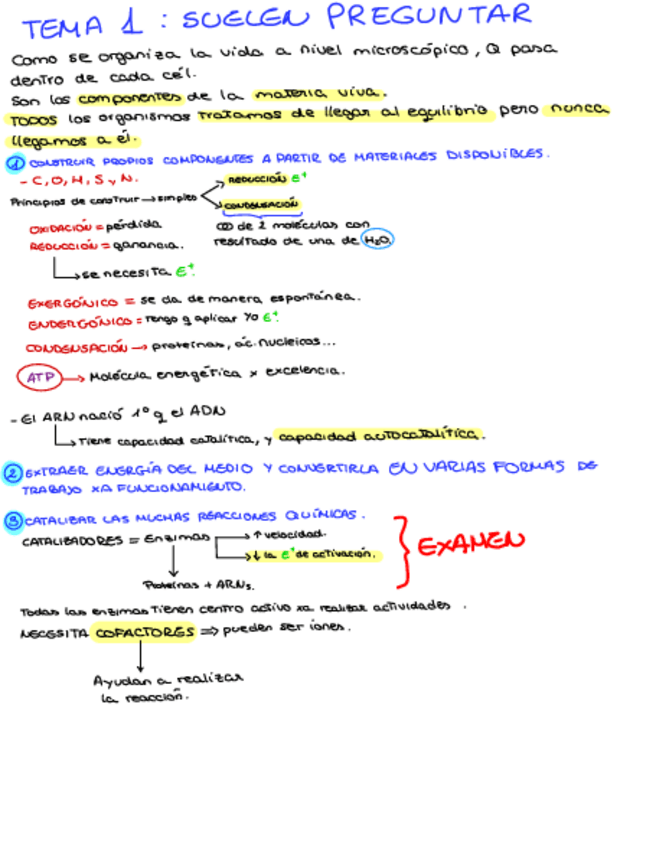 TEMA 1 : SUELEN PREGUNTAR
Como se organiza la vida a nivel microscópico, Q pasa
dentro de cada cél.
Son los componentes de la materia viva.
TODOS los organismos tratamos de llegar al equilibrio pero nunca
llegamos a él.
① CONSTRUIR PROPIOS COMPONENTES A PARTIR DE MATERIALES DISPONIBLES.
- C, O, H, S y N.
REDUCCIÓN E⁺
Principios de construir → simples
CONDENSACIÓN
OXIDACIÓN = pérdida
de 2 moléculas con
REDUCCIÓN = ganancia.
resultado de una de H₂O.
se necesita E⁺.
EXERGÓNICO = se da de manera espontánea.
ENDERGÓNICO = tengo q aplicar yo E⁺.
CONDENSACIÓN → proteínas, ác. nucleicos...
ATP → Molécula energética x excelencia.
- El ARN nació 1º q el ADN
Tiene capacidad catalítica, y capacidad autocatalítica.
② EXTRAER ENERGÍA DEL MEDIO Y CONVERTIRLA EN VARIAS FORMAS DE
TRABAJO XA FUNCIONAMIENTO.
③ CATALIZAR LAS MUCHAS REACCIONES QUÍMICAS.
CATALIZADORES = Enzimas → ↑ velocidad.
↓ la E⁺ de activación.
EXAMEN
Proteínas + ARNs.
Todas las enzimas tienen centro activo xa realizar actividades.
NECESITA COFACTORES ⇒ pueden ser iones.
Ayudan a realizar
la reacción.